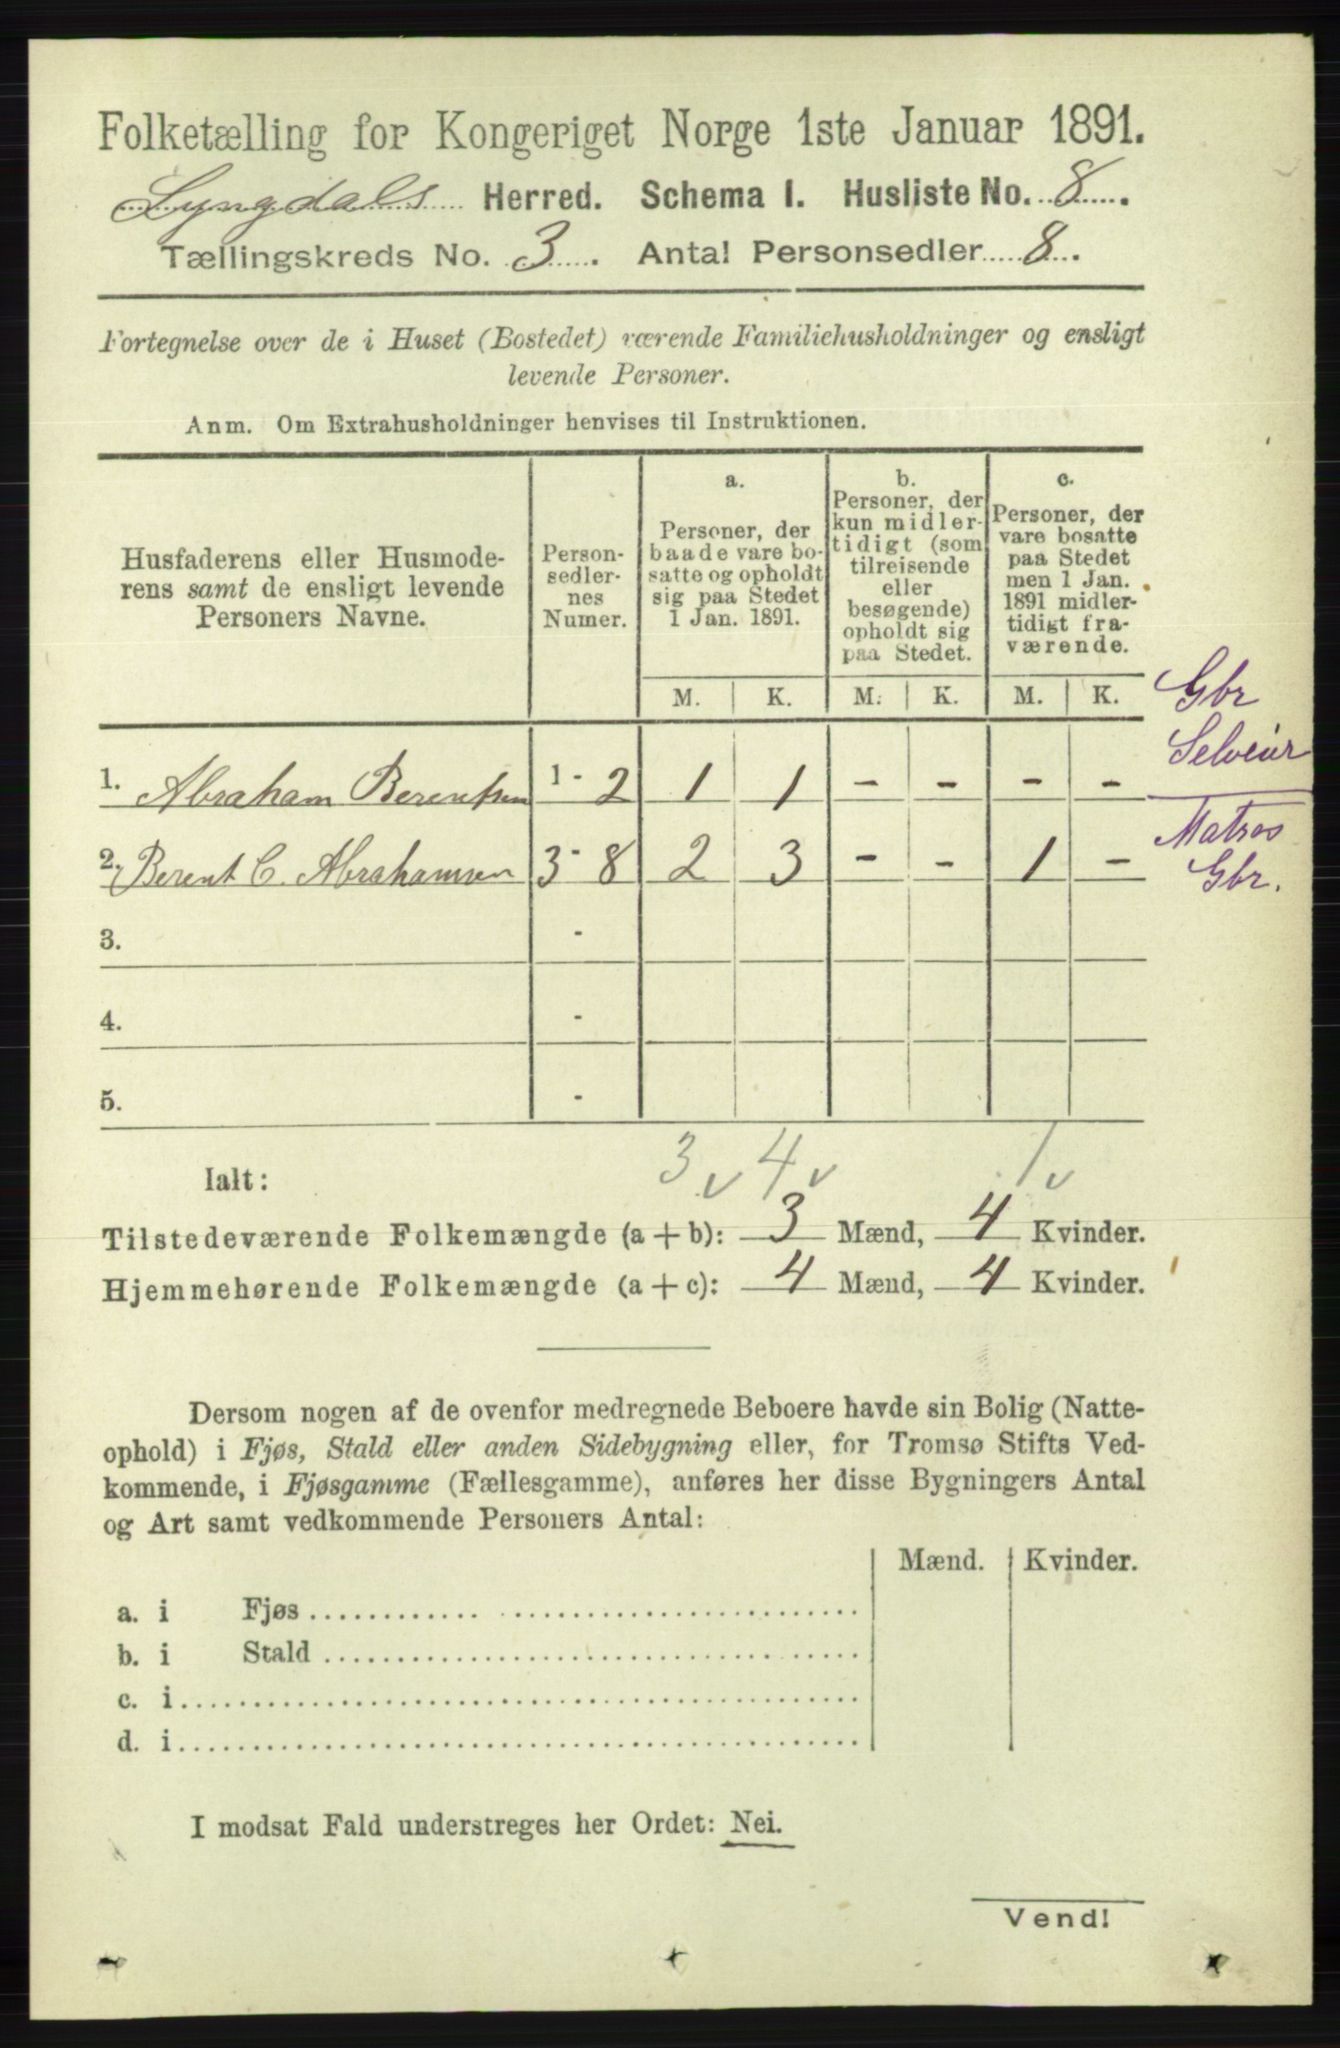 Folketælling for Kongeriget Norge 1ste Januar 1891.
Lyngdals Herred. Schema I. Husliste No. 8.
Tællingskreds No. 3. Antal Personsedler 8.
Fortegnelse over de i Huset (Bostedet) værende Familiehusholdninger og ensligt
levende Personer.
Anm. Om Extrahusholdninger henvises til Instruktionen.
Husfaderens eller Husmode-
rens samt de ensligt levende
Personers Navne.
Person-
sedler-
nes
Numer.
a.
Personer, der
baade vare bo-
satte og opholdt
sig paa Stedet
1 Jan. 1891.
b.
Personer, der
kun midler-
tidigt (som
tilreisende
eller
besøgende)
opholdt sig
paa Stedet.
c.
Personer, der
vare bosatte
paa Stedet
men 1 Jan.
1891 midler-
tidigt fra-
værende.
M. K. M. K. M. K.
Gbr
Selveier
1. Abraham Berentsen 1 - 2 1 1 - - - -
Matros
Gbr.
2. Berent C. Abrahamsen 3 - 8 2 3 - - 1 -
3. -
4. -
5. -
Ialt: 3 v 4 v 1 v
Tilstedeværende Folkemængde (a + b): 3 Mænd, 4 Kvinder.
Hjemmehørende Folkemængde (a + c): 4 Mænd, 4 Kvinder.
Dersom nogen af de ovenfor medregnede Beboere havde sin Bolig (Natte-
ophold) i Fjøs, Stald eller anden Sidebygning eller, for Tromsø Stifts Ved-
kommende, i Fjøsgamme (Fællesgamme), anføres her disse Bygningers Antal
og Art samt vedkommende Personers Antal:
Mænd. Kvinder.
a. i Fjøs
b. i Stald
c. i
d. i
I modsat Fald understreges her Ordet: Nei.
Vend!